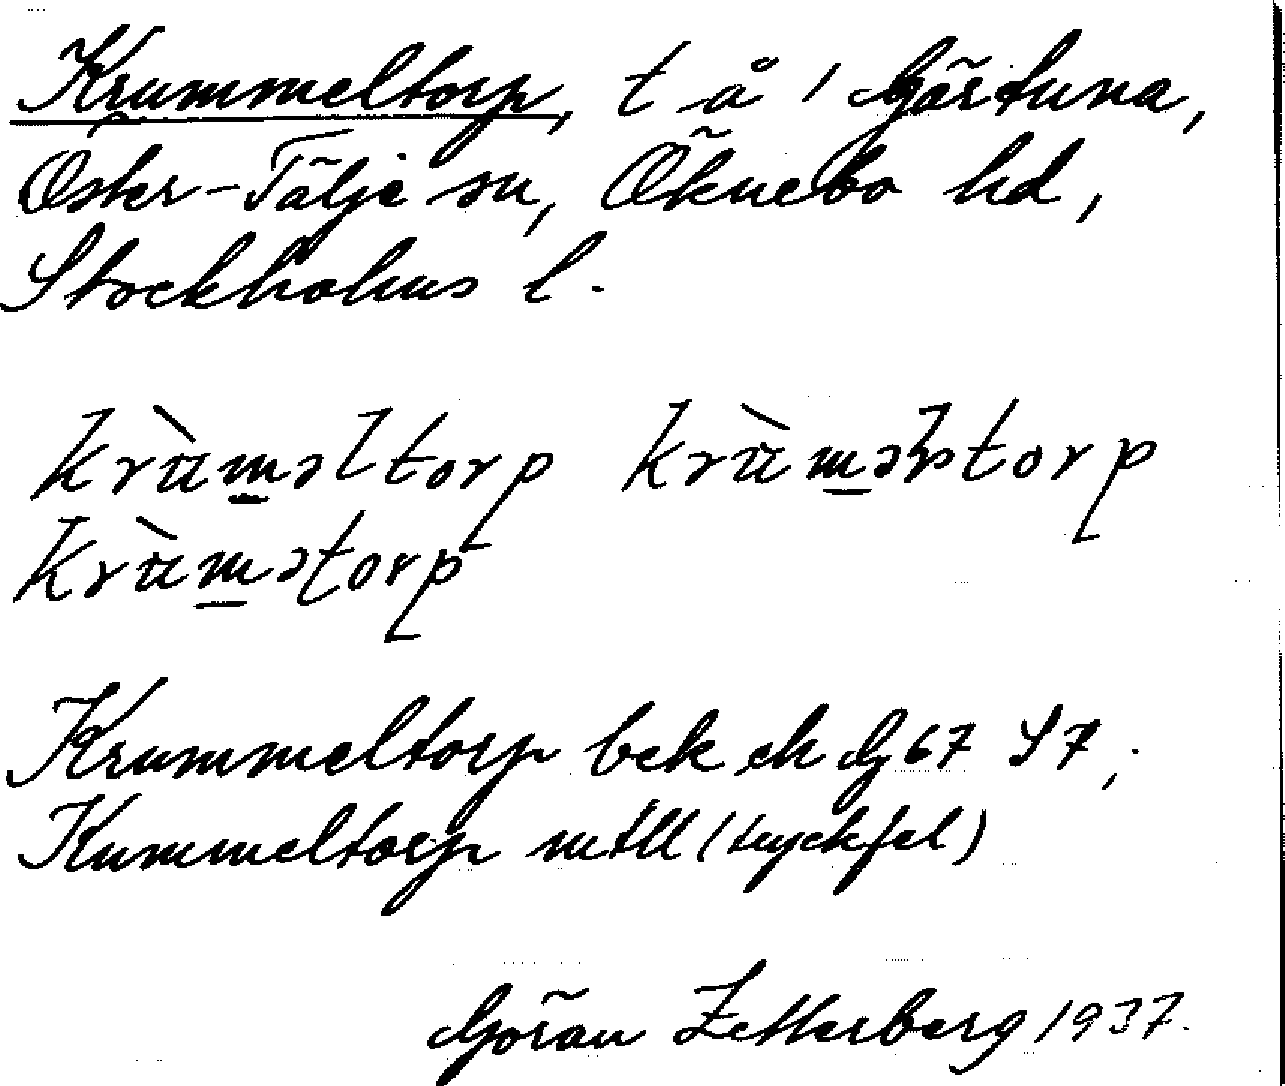 Krummeltorp, t å 1 Gärtuna,
Öster-Tälje sn, Öknebo hd,
Stockholms l.
krùmǝltorp krùmǝlstorp
krùmǝtorp
Krummeltorp bek ek dg 67 S7;
Kummeltorp mtll (tryckfel)
Göran Zetterberg 1937.